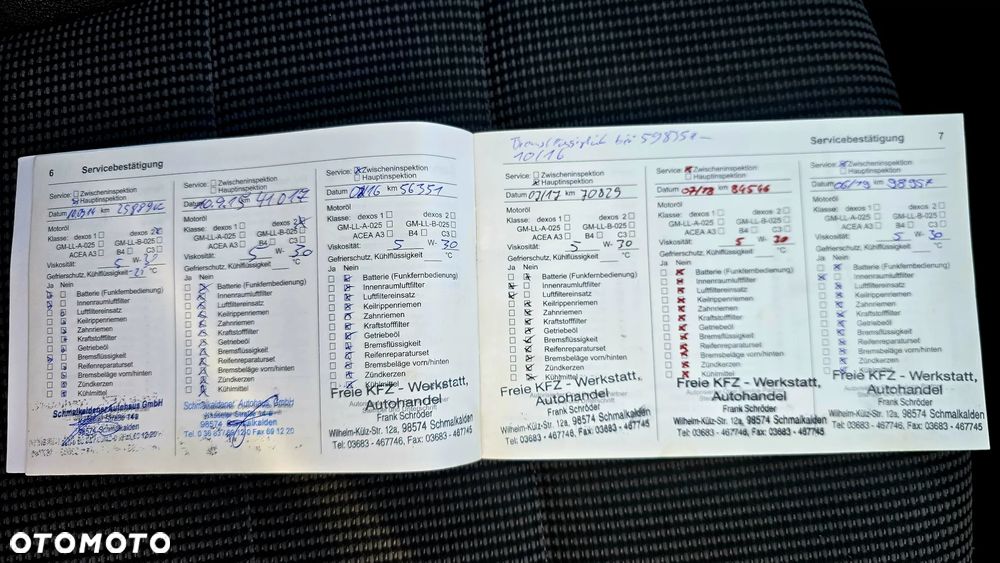 6 Servicebestätigung
Service: Zwischeninspektion
Hauptinspektion
Datum 10.9.14 km
Motoröl
Klasse: dexos 1 dexos 2
GM-LL-A-025 GM-LL-B-025
ACEA A3 B4 C3
Viskosität: 5 W- 30
Gefrierschutz, Kühlflüssigkeit °C
Ja Nein
Batterie (Funkfernbedienung)
Innenraumluftfilter
Luftfiltereinsatz
Keilrippenriemen
Zahnriemen
Kraftstofffilter
Getriebeöl
Bremsflüssigkeit
Reifenreparaturset
Bremsbeläge vorn/hinten
Zündkerzen
Kühlmittel
Schmalkaldener Autohaus GmbH
Schmalkalden
Service: Zwischeninspektion
Hauptinspektion
Datum 10.9.15 km 41017
Motoröl
Klasse: dexos 1 dexos 2
GM-LL-A-025 GM-LL-B-025
ACEA A3 B4 C3
Viskosität: 5 W- 30
Gefrierschutz, Kühlflüssigkeit °C
Ja Nein
Batterie (Funkfernbedienung)
Innenraumluftfilter
Luftfiltereinsatz
Keilrippenriemen
Zahnriemen
Kraftstofffilter
Getriebeöl
Bremsflüssigkeit
Reifenreparaturset
Bremsbeläge vorn/hinten
Zündkerzen
Kühlmittel
Schmalkaldener Autohaus GmbH
98574 Schmalkalden
Service: Zwischeninspektion
Hauptinspektion
Datum km 56351
Motoröl
Klasse: dexos 1 dexos 2
GM-LL-A-025 GM-LL-B-025
ACEA A3 B4 C3
Viskosität: 5 W- 30
Gefrierschutz, Kühlflüssigkeit °C
Ja Nein
Batterie (Funkfernbedienung)
Innenraumluftfilter
Luftfiltereinsatz
Keilrippenriemen
Zahnriemen
Kraftstofffilter
Getriebeöl
Bremsflüssigkeit
Reifenreparaturset
Bremsbeläge vorn/hinten
Zündkerzen
Kühlmittel
Freie KFZ - Werkstatt,
Autohandel
Frank Schröder
Wilhelm-Külz-Str. 12a, 98574 Schmalkalden
Tel: 03683 - 467746, Fax: 03683 - 467745
Servicebestätigung 7
10/16
Service: Zwischeninspektion
Hauptinspektion
Datum 07/17 km 70829
Motoröl
Klasse: dexos 1 dexos 2
GM-LL-A-025 GM-LL-B-025
ACEA A3 B4 C3
Viskosität: 5 W- 30
Gefrierschutz, Kühlflüssigkeit °C
Ja Nein
Batterie (Funkfernbedienung)
Innenraumluftfilter
Luftfiltereinsatz
Keilrippenriemen
Zahnriemen
Kraftstofffilter
Getriebeöl
Bremsflüssigkeit
Reifenreparaturset
Bremsbeläge vorn/hinten
Zündkerzen
Kühlmittel
Freie KFZ - Werkstatt,
Autohandel
Frank Schröder
Wilhelm-Külz-Str. 12a, 98574 Schmalkalden
Tel: 03683 - 467746, Fax: 03683 - 467745
Service: Zwischeninspektion
Hauptinspektion
Datum 07/18 km 84546
Motoröl
Klasse: dexos 1 dexos 2
GM-LL-A-025 GM-LL-B-025
ACEA A3 B4 C3
Viskosität: 5 W- 30
Gefrierschutz, Kühlflüssigkeit °C
Ja Nein
Batterie (Funkfernbedienung)
Innenraumluftfilter
Luftfiltereinsatz
Keilrippenriemen
Zahnriemen
Kraftstofffilter
Getriebeöl
Bremsflüssigkeit
Reifenreparaturset
Bremsbeläge vorn/hinten
Zündkerzen
Kühlmittel
Freie KFZ - Werkstatt,
Autohandel
Frank Schröder
Wilhelm-Külz-Str. 12a, 98574 Schmalkalden
Tel: 03683 - 467746, Fax: 03683 - 467745
Service: Zwischeninspektion
Hauptinspektion
Datum 06/19 km 98957
Motoröl
Klasse: dexos 1 dexos 2
GM-LL-A-025 GM-LL-B-025
ACEA A3 B4 C3
Viskosität: 5 W- 30
Gefrierschutz, Kühlflüssigkeit °C
Ja Nein
Batterie (Funkfernbedienung)
Innenraumluftfilter
Luftfiltereinsatz
Keilrippenriemen
Zahnriemen
Kraftstofffilter
Getriebeöl
Bremsflüssigkeit
Reifenreparaturset
Bremsbeläge vorn/hinten
Zündkerzen
Kühlmittel
Freie KFZ - Werkstatt,
Autohandel
Frank Schröder
Wilhelm-Külz-Str. 12a, 98574 Schmalkalden
Tel: 03683 - 467746, Fax: 03683 - 467745
OTOMOTO